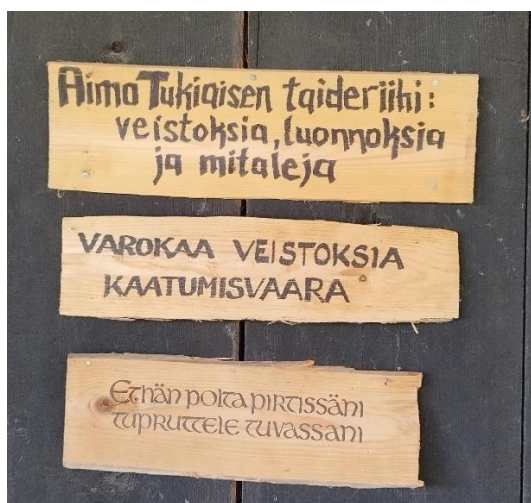 Aimo Tukiaisen taideriihi:
veistoksia, luonnoksia
ja mitaleja
VAROKAA VEISTOKSIA
KAATUMISVAARA
Ethän polta pirtissäni
tupruttele tuvassani